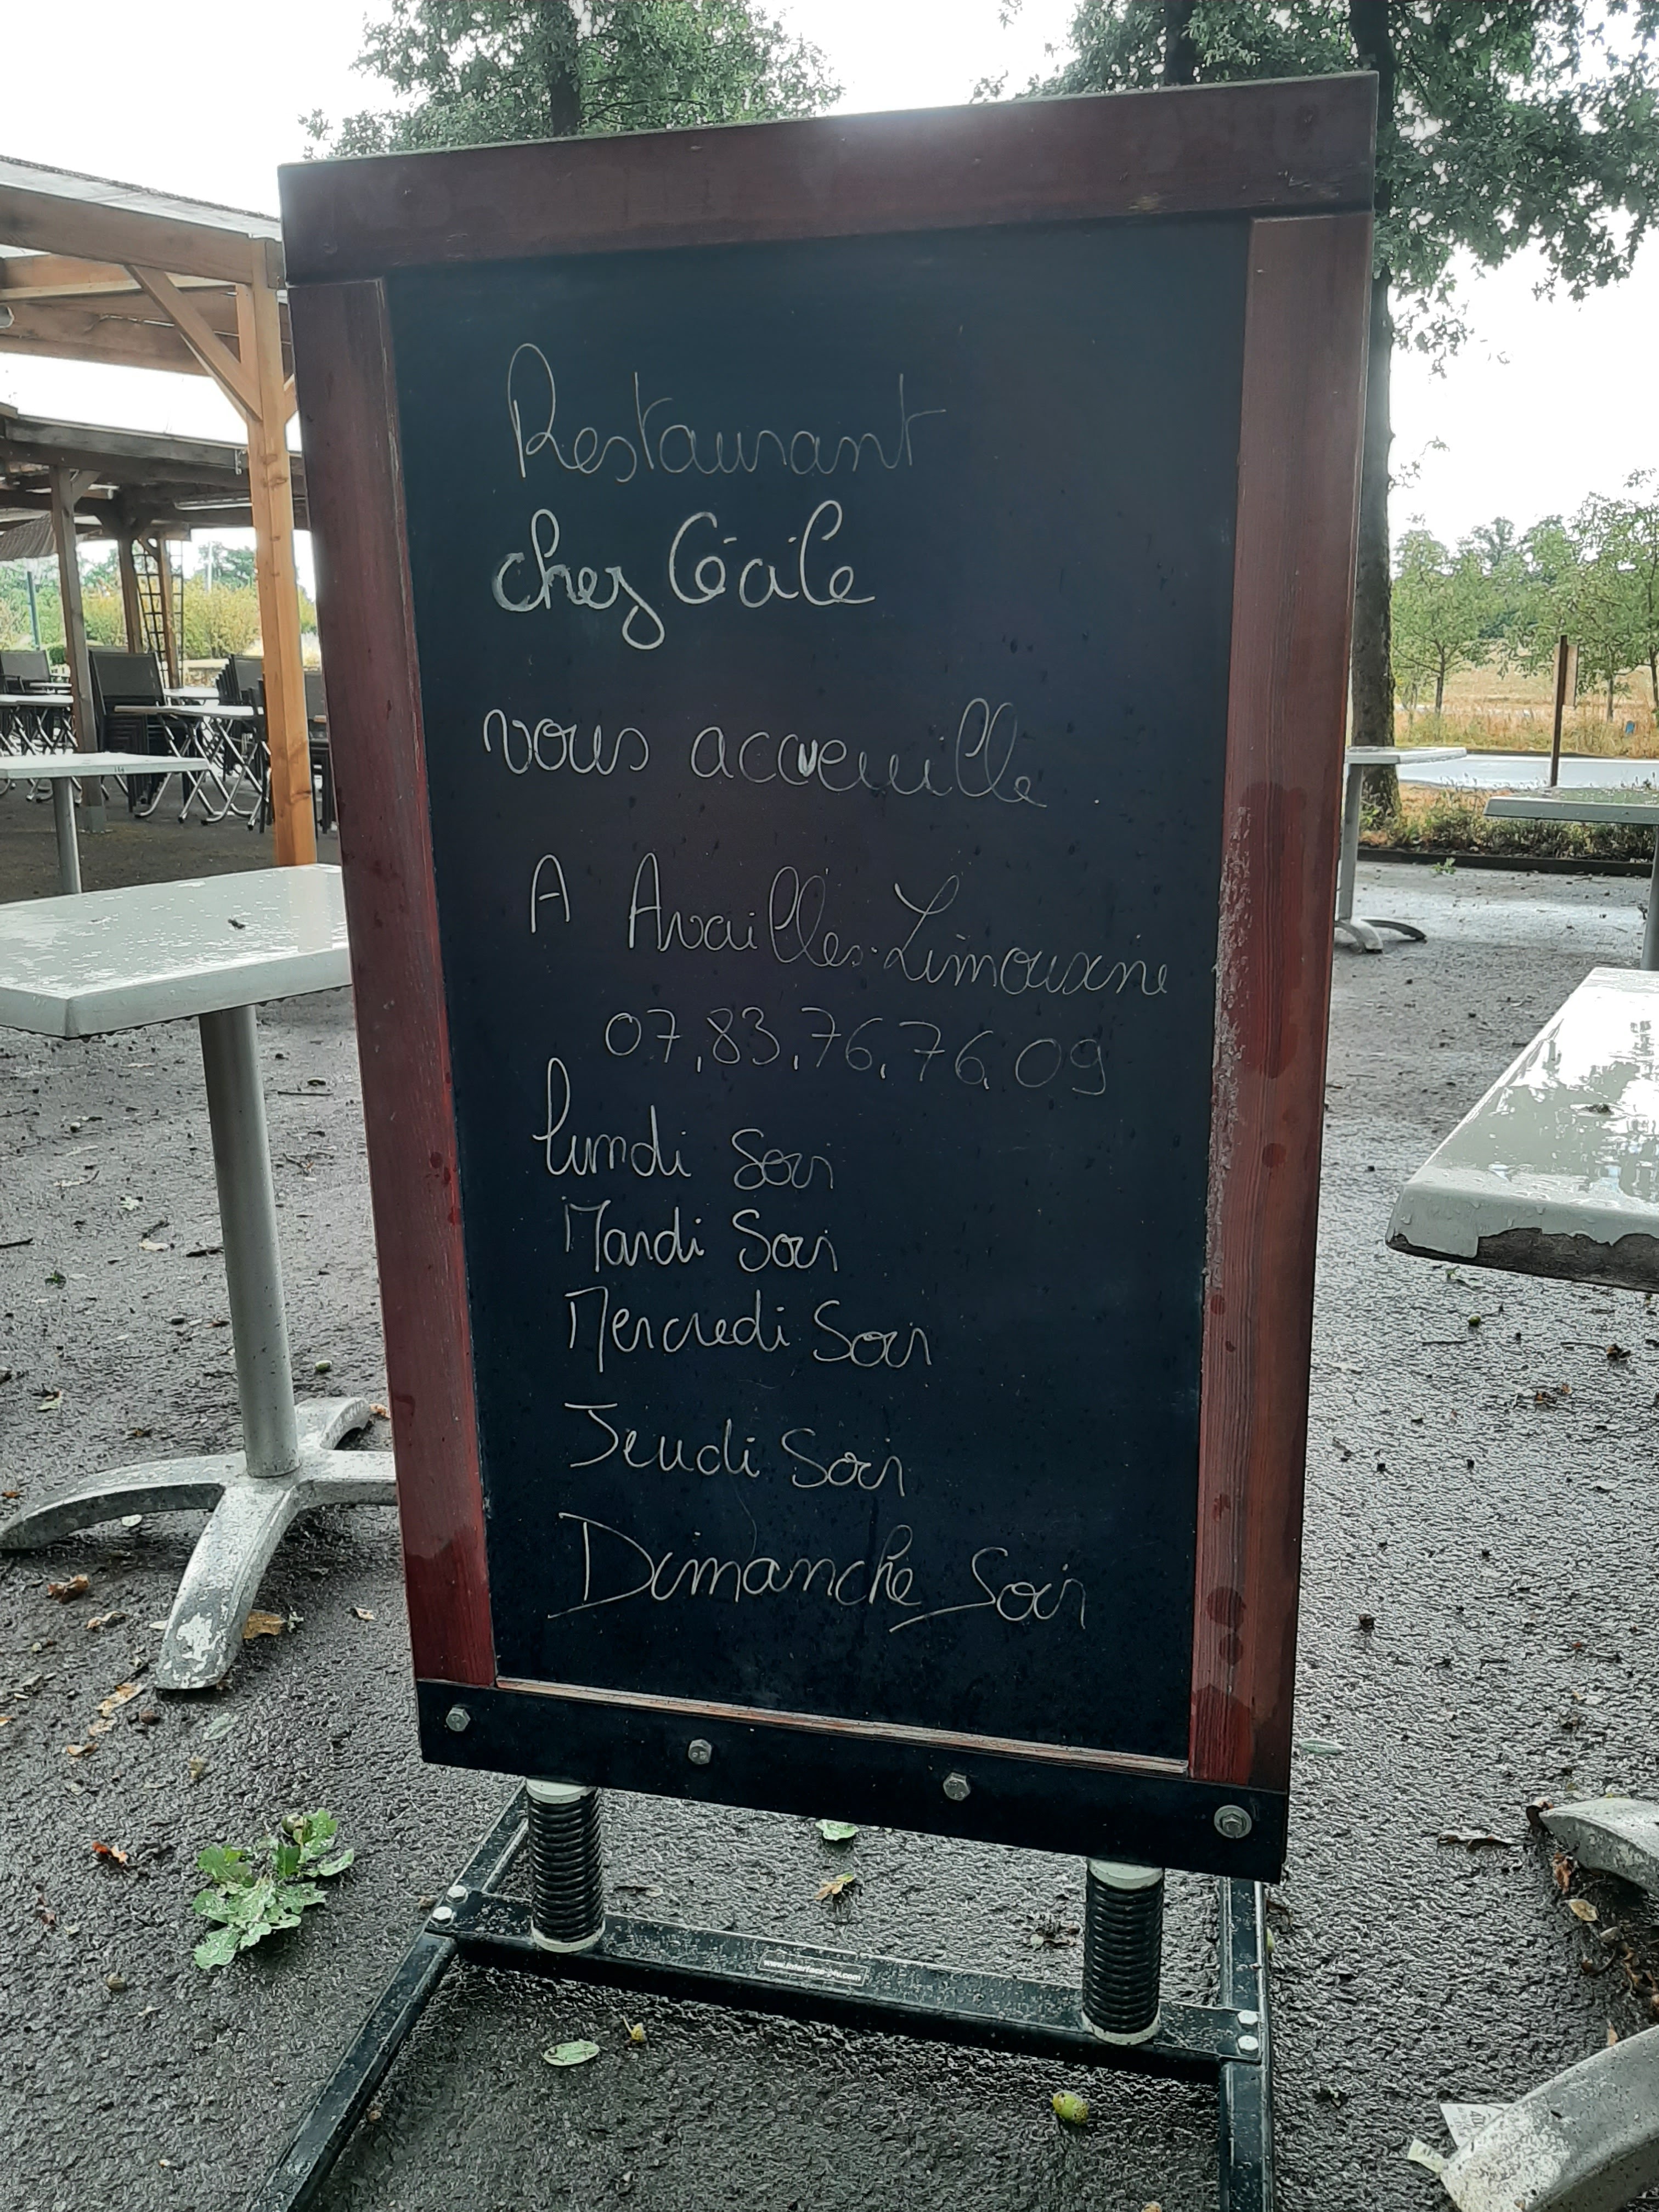 Restaurant
chez Cécile
vous accueuille
A Availles-Limouxine
07,83,76,76,09
lundi Soir
Mardi Soir
Mercredi Soir
Jeudi Soir
Dimanche Soir